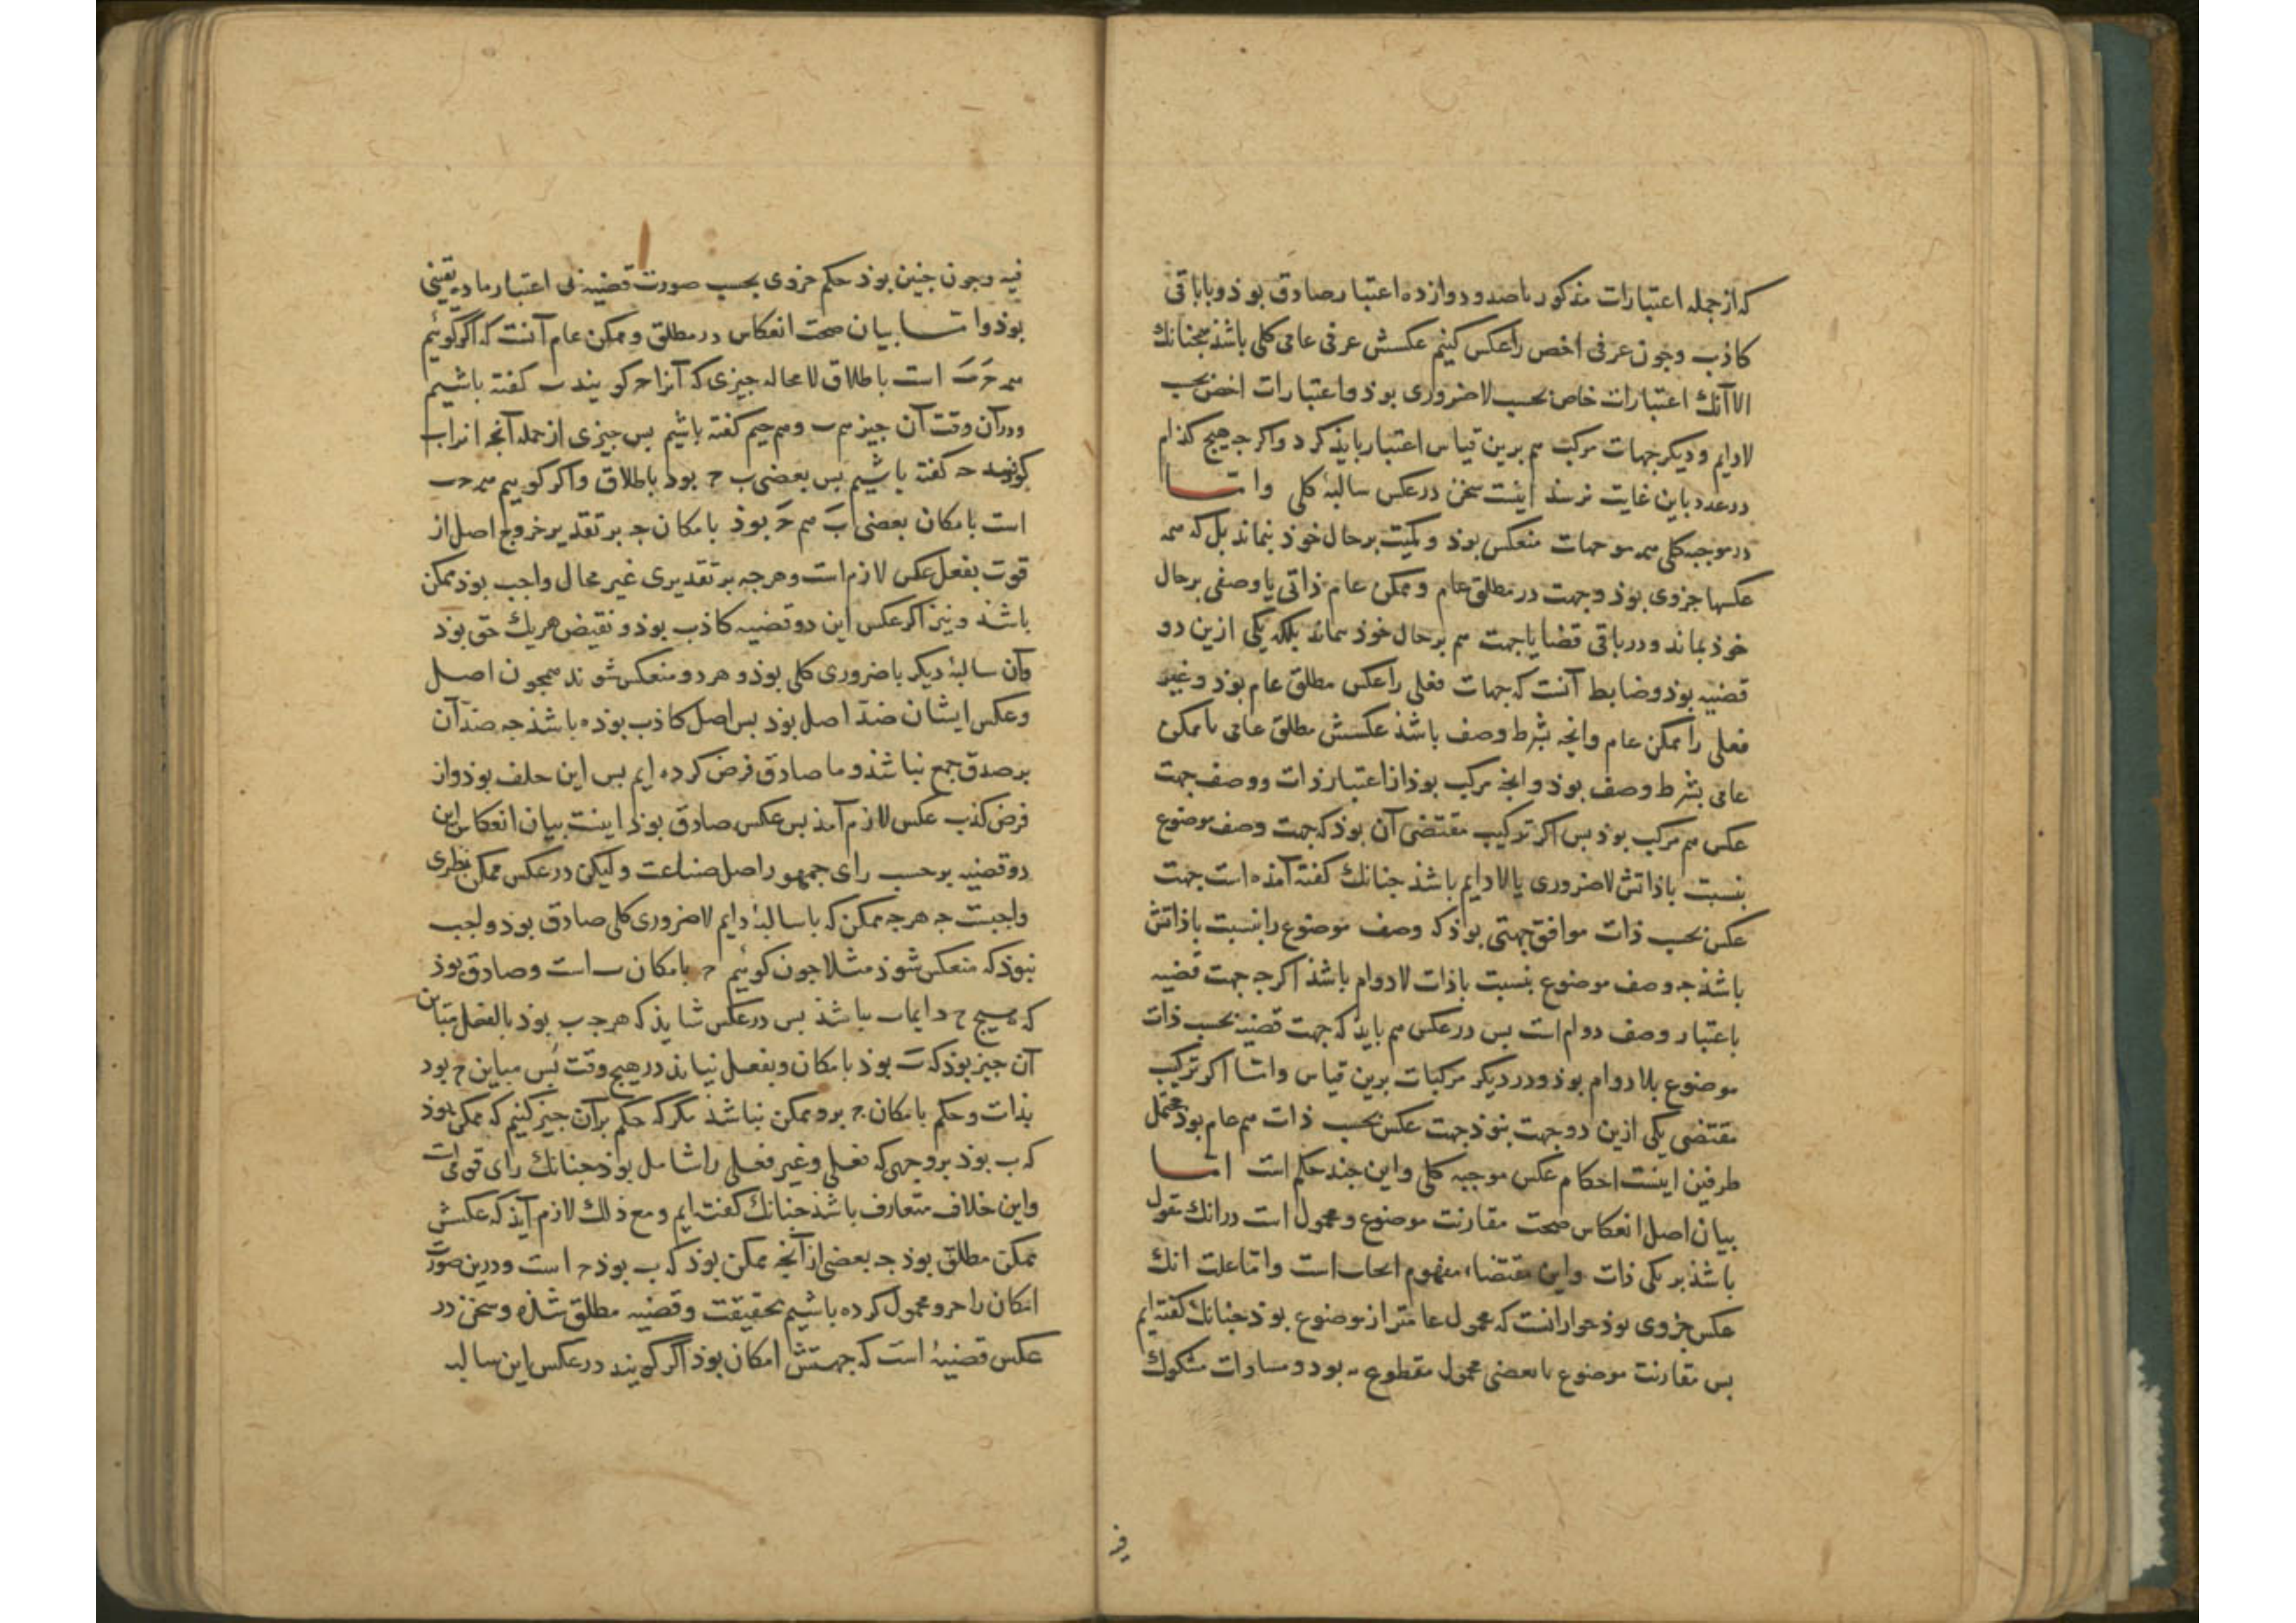 که از جمله اعتبارات مذکور با صد و دوازده اعتبار صادق بوذ و با باقی
کاذب وجون عرفی اخص را عکس کنیم عکسش عرفی عامی کلی باشذ همجنانك
الا آنك اعتبارات خاص بحسب لاضروری بوذ و اعتبارات اخص بحسب
لادایم و دیکر جهات مرکب هم برین قیاس اعتبار بایذ کرد و اکرجه هیج کذام
در عدد باین غایت نرسذ اینست سخن در عکس سالبۀ کلی واما
در موجبه کلی همه موجهات منعکس بوذ و کمیت بر حال خوذ نماند بل که همه
عکسها جزوی بوذ و جهت در مطلق عام و ممکن عام ذاتی یا وصفی بر حال
خوذ بماند و در باقی قضایا جهت هم بر حال خوذ نماند بلکه یکی ازین دو
قضیه بوذ و ضابط آنست که جهات فعلی را عکس مطلق عام بوذ و غیر
فعلی را ممکن عام وانجه بشرط وصف باشذ عکسش مطلق عامی یا ممکن
عامی بشرط وصف بوذ و انجه مرکب بوذ از اعتبار ذات و وصف جهت
عکس هم مرکب بوذ بس اکر ترکیب مقتضی آن بوذ که جهت وصف موضوع
بنسبت باذاتش لاضروری یا لادایم باشذ جنانك کفته آمذه است جهت
عکس بحسب ذات موافق جهتی بوذ که وصف موضوع را بنسبت باذاتش
باشذ جه وصف موضوع بنسبت باذات لادوام باشذ اکرجه جهت قضیه
باعتبار وصف دوام است بس در عکس هم بایذ که جهت قضیه بحسب ذات
موضوع بلادوام بوذ و در دیکر مرکبات برین قیاس واما اکر ترکیب
مقتضی یکی ازین دو جهت نبوذ جهت عکس بحسب ذات هم عام بوذ محتمل
طرفین اینست احکام عکس موجبه کلی و این جند حکم است اما
بیان اصل انعکاس صحت مقارنت موضوع و محمول است در انك مقول
باشذ بر یکی ذات و این مقتضاء مفهوم ایجاب است واما علت انك
عکس جزوی بوذ جواز انست که محمول عامتر از موضوع بوذ جنانك کفته ایم
بس مقارنت موضوع با بعضی محمول مقطوع به بود و مساوات مشکوك
فیه
فیه وجون جنین بوذ حکم جزوی بحسب صورت قضیه بی اعتبار ماده یقینی
بوذ واما بیان صحت انعکاس در مطلق و ممکن عام آنست که اگر گوئیم
همه ج ب است باطلاق لامحاله جیزی که آنرا ج کویند ب کفته باشیم
ودر آن وقت آن جیز هم ب و هم جیم کفته باشیم بس جیزی از جمله آنجه انرا ب
کویند ج کفته باشیم بس بعضی ب ج بود باطلاق واکر کوییم همه ج ب
است بامکان بعضی ب هم ج بوذ بامکان جه بر تقدیر خروج اصل از
قوت بفعل عکس لازم است و هرجه بر تقدیری غیر محال واجب بوذ ممکن
باشذ و نیز اکر عکس این دو قضیه کاذب بوذ و نقیض هر یك حق بوذ
وآن سالبۀ دیکر یا ضروری کلی بوذ و هر دو منعکس شوند همجون اصل
وعکس ایشان ضد اصل بوذ بس اصل کاذب بوذه باشذ جه ضد آن
بر صدق جمع نباشذ و ما صادق فرض کرده ایم بس این خلف بوذ واز
فرض کذب عکس لازم آمذ بس عکس صادق بوذ اینست بیان انعکاس این
دو قضیه بر حسب رای جمهور اصل صناعت و لیکن در عکس ممکن نظری
واجبست جه هرجه ممکن که با سالبۀ دایم لاضروری کلی صادق بوذ واجب
نبوذ که منعکس شوذ مثلا جون کوئیم ج بامکان ب است وصادق بوذ
که هیج ج دایما ب نباشذ بس در عکس شایذ که هرجه ب بوذ بالفعل مباین
آن جیز بوذ که ب بوذ بامکان و بفعل نیاید در هیج وقت بس مباین ج بود
بذات وحکم بامکان ج برو ممکن نباشذ مگر که حکم بر آن جیز کنیم که ممکن بوذ
که ب بوذ بر وجهی که فعلی و غیر فعلی را شامل بوذ جنانك رای قومی است
واین خلاف متعارف باشذ جنانك کفته ایم و مع ذلك لازم آیذ که عکسش
ممکن مطلق بوذ جه بعضی از آنجه ممکن بوذ که ب بوذ ج است و درین صورت
امکان را جزو محمول کرده باشیم بحقیقت وقضیه مطلق شذه وسخن در
عکس قضیۀ است که جهتش امکان بوذ اگر گویند در عکس این سالبه